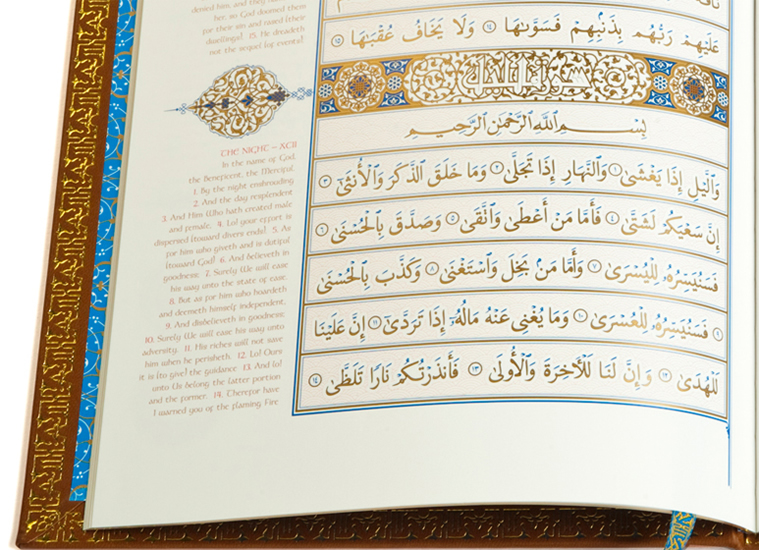 denied him, and they ham
her, so God doomed them
for their sin and rased (their
dwellings). 15. He dreadeth
not the sequel (of events).
عَلَيْهِمْ رَبُّهُم بِذَنۢبِهِمْ فَسَوَّىٰهَا ١٤ وَلَا يَخَافُ عُقْبَٰهَا ١٥
سورة الليل
بِسْمِ ٱللَّهِ ٱلرَّحْمَٰنِ ٱلرَّحِيمِ
وَٱلَّيْلِ إِذَا يَغْشَىٰ ١ وَٱلنَّهَارِ إِذَا تَجَلَّىٰ ٢ وَمَا خَلَقَ ٱلذَّكَرَ وَٱلْأُنثَىٰٓ ٣
إِنَّ سَعْيَكُمْ لَشَتَّىٰ ٤ فَأَمَّا مَنْ أَعْطَىٰ وَٱتَّقَىٰ ٥ وَصَدَّقَ بِٱلْحُسْنَىٰ ٦
فَسَنُيَسِّرُهُۥ لِلْيُسْرَىٰ ٧ وَأَمَّا مَنۢ بَخِلَ وَٱسْتَغْنَىٰ ٨ وَكَذَّبَ بِٱلْحُسْنَىٰ
٩ فَسَنُيَسِّرُهُۥ لِلْعُسْرَىٰ ١٠ وَمَا يُغْنِى عَنْهُ مَالُهُۥٓ إِذَا تَرَدَّىٰٓ ١١ إِنَّ عَلَيْنَا
لَلْهُدَىٰ ١٢ وَإِنَّ لَنَا لَلْـَٔاخِرَةَ وَٱلْأُولَىٰ ١٣ فَأَنذَرْتُكُمْ نَارًا تَلَظَّىٰ ١٤
THE NIGHT – XCII
In the name of God,
the Beneficent, the Merciful.
1. By the night enshrouding
2. And the day resplendent
3. And Him Who hath created male
and female. 4. Lo! your effort is
dispersed (toward divers ends). 5. As
for him who giveth and is dutiful
(toward God) 6. And believeth in
goodness: 7. Surely We will ease
his way unto the state of ease.
8. But as for him who hoardeth
and deemeth himself independent,
9. And disbelieveth in goodness:
10. Surely We will ease his way unto
adversity. 11. His riches will not save
him when he perisheth. 12. Lo! Ours
it is (to give) the guidance 13. And lo!
unto Us belong the latter portion
and the former. 14. Therefore have
I warned you of the flaming Fire